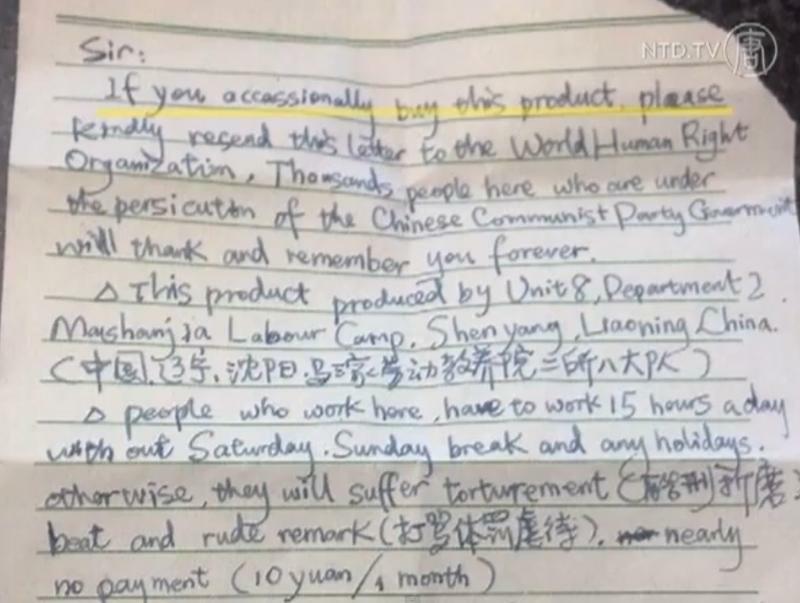 NTD.TV
Sir:
If you accassionally buy this product, please
kindly resend this letter to the World Human Right
Organization. Thousands people here who are under
the persicution of the Chinese Communist Party Goverment
will thank and remember you forever.
△ This product produced by Unit 8, Department 2.
Mashanjia Labour Camp. Shen yang, Liaoning China.
(中国.辽宁.沈阳.马三家劳动教养院二所八大队)
△ people who work here, have to work 15 hours a day
with out Saturday. Sunday break and any holidays.
otherwise, they will suffer torturement ( 折磨
beat and rude remark (打骂体罚虐待). nearly
no payment (10 yuan/1 month)